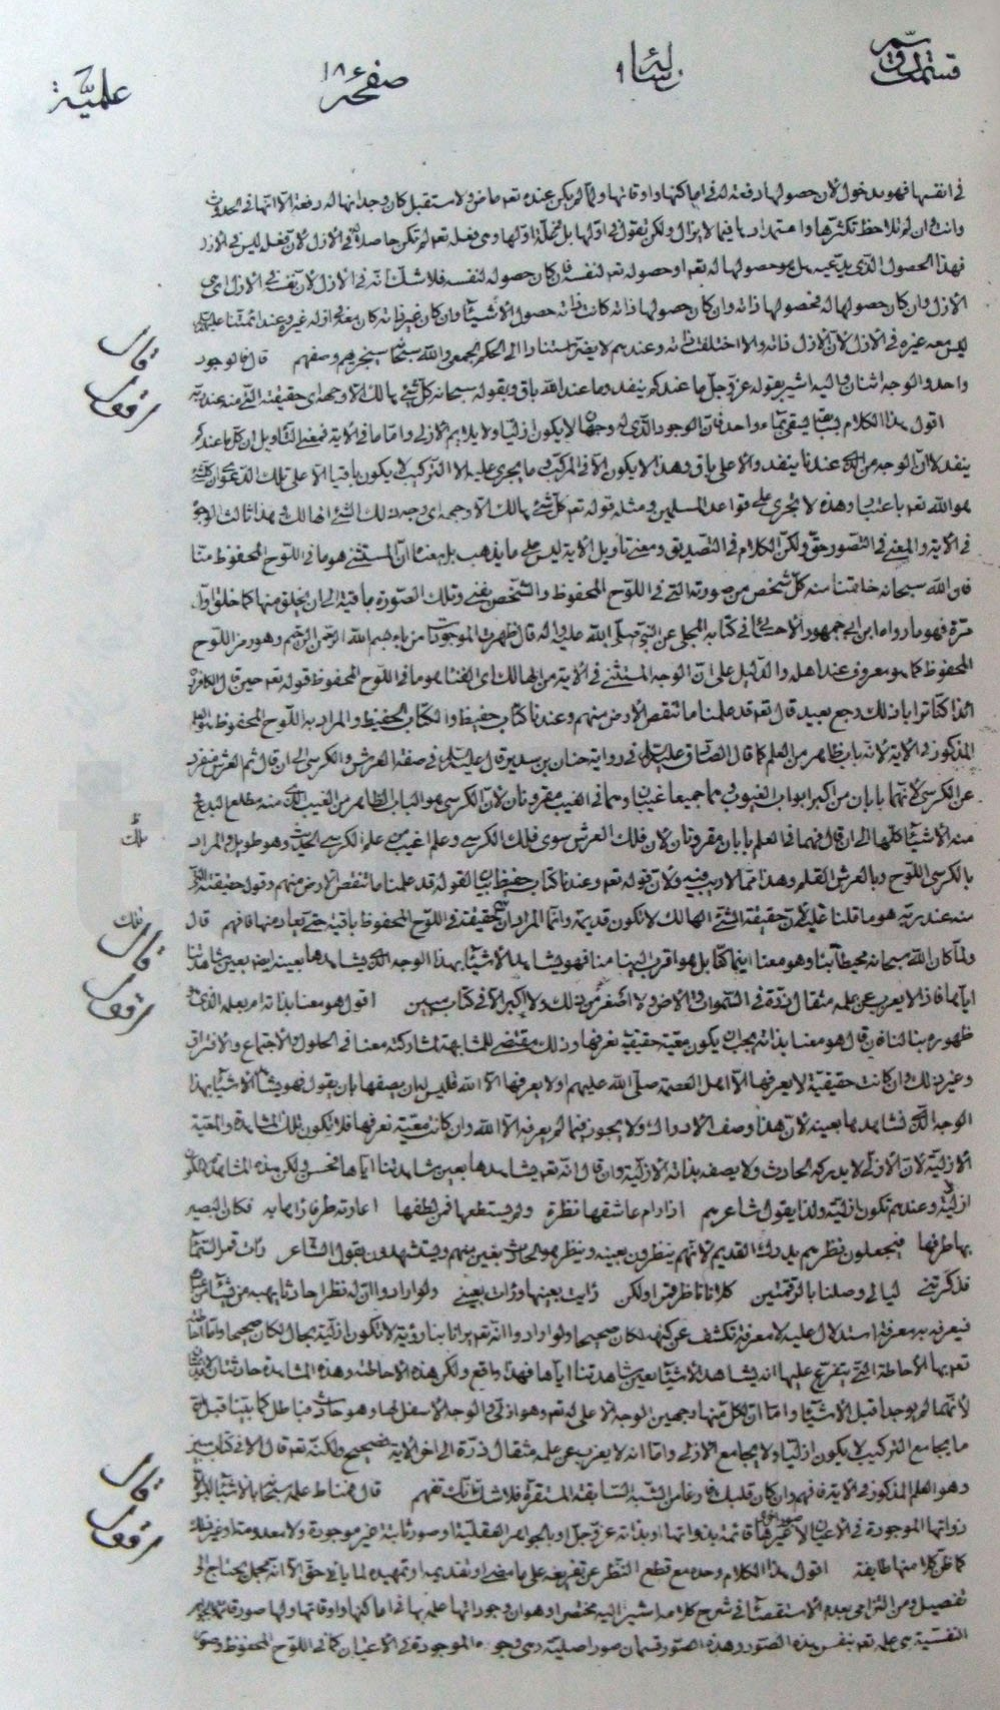 قسمت دوم رسالة ٩ صفحة ١٨ علمية
في انفسها فهو بدخول الآن حصولها دفعة له في اماكنها واوقاتها ولما لم يكن عنده تعالى ماض ولا مستقبل كان وجدانها له دفعة الا انها في الحدوث
وانت ان لم تلاحظ تكثرها وامتدادها فيما لا يزال ولكن تقول في اولها بل في اولها وهي فعله تعم لم تكن حاصلة في الازل لان فعله ليس في الازل
فهذا الحصول الذي يدعيه هل هو حصولها له تعم او حصوله تعم لنفسه فان كان حصوله لنفسه فلا شك انه في الازل لان نفسه الازل
الازل وان كان حصولها له فحصولها ذاته وان كان حصولها ذاته كانت ذاته حصول الاشياء وان كان غير ذاته كان معه في ازله غيره وعند ائمتنا عليهم
ليس معه غيره في الازل لان الازل ذاته والا اختلفت ذاته وعندهم لا يغير استنادا الى الحكم الجمعي والله سبحانه سيجزيهم وصفهم قال فالوجود
واحد والوجه اثنان واليه اشير بقوله عز وجل ما عندكم ينفد وما عند الله باق وبقوله سبحانه كل شيء هالك الا وجهه اي حقيقته التي منه عند ربه
اقول هذا الكلام يسقى بماء واحد فان الوجود الذي له وجهان لا يكون ازليا ولا يلائم الازلي واما ما في الآية فمعنى التأويل ان كل ما عندكم
ينفد لان الوجه من الذي عندنا ينفد والاعلى باق وهذا لا يكون الا في المركب ما يجري عليه الا التركيب لا يكون باقيا الا على تلك الدعوى ان كل شيء
هو الله تعم باعتبار وهذه لا تجري على قواعد المسلمين ومثله قوله تعم كل شيء هالك الا وجهه اي وجه ذلك الشيء الهالك وهذا ثالث الوجوه
في الآية والمعنى في التصور حق ولكن الكلام في التصديق ومعنى تأويل الآية ليس على ما يذهب بل معناه ان المستثنى هو ما في اللوح المحفوظ منا
فان الله سبحانه خالقنا منه كل شخص من صورته التي في اللوح المحفوظ والشخص يفنى وتلك الصورة باقية الى ان يخلق منها كما خلق اول
مرة فهو ما رواه ابن ابي جمهور الاحسائي في كتابه المجلي عن النبي صلى الله عليه واله قال ظهرت الموجودات من باء بسم الله الرحمن الرحيم وهو رمز اللوح
المحفوظ كما هو معروف عند اهله والدليل على ان الوجه المستثنى في الآية من الهالك اى الفناء هو ما في اللوح المحفوظ قوله تعم حين قال الكافرون
ائذا كنا ترابا ذلك رجع بعيد قال تعم قد علمنا ما تنقص الارض منهم وعندنا كتاب حفيظ والكتاب الحفيظ والمراد به اللوح المحفوظ هو العلم
المذكور في الآية لانه باب ظاهر من العلم كما قال الصادق عليه السلام في رواية حنان بن سدير قال عليه السلام في صفة العرش والكرسي الى ان قال ثم العرش منفرد
عن الكرسي لانهما بابان من اكبر ابواب الغيوب وهما جميعا غيبان وهما في الغيب مقرونان لان الكرسي هو الباب الظاهر من الغيب الذي منه مطلع البدع
منه الاشياء كلها الى ان قال فهما في العلم بابان مقرونان لان ملك العرش سوى ملك الكرسي وعلمه اغيب من علم الكرسي الحديث وهو طويل والمراد
بالكرسي اللوح وبالعرش القلم وهذا مما لا ريب فيه ولان قوله تعم وعندنا كتاب حفيظ بيان لقوله قد علمنا ما تنقص الارض منهم وقوله حقيقته التي
منه عند ربه هو ما قلنا عليه لان حقيقة الشيء الهالك لا تكون قديمة وانما المراد ان حقيقته في اللوح المحفوظ باقية حتى يعاد منها فافهم قال
ولما كان الله سبحانه محيطا بنا وهو معنا اينما كنا بل هو اقرب الينا منا فهو يشاهد الاشياء بهذا الوجه الذي يشاهدها بعينه ايضا بعين مشاهدتنا
اياها فاذ لا يعزب عن علمه مثقال ذرة في السموات ولا في الارض ولا اصغر من ذلك ولا اكبر الا في كتاب مبين اقول هو معنا بذاته ام بعلمه
ظهوره بنا لنا فان قال هو معنا بذاته يجب ان يكون معية حقيقية نعرفها وذلك مقتضى للمشابهة لمشاركته معنا في الحلول والاجتماع والافتراق
وغير ذلك وان كانت حقيقية لا يعرفها الا اهل العصمة صلى الله عليهم او لا يعرفها الا الله فليس له ان يصفها بان يقول فهو يشاهد الاشياء بهذا
الوجه الذي نشاهدها بعينه لان هذا وصف الادراك ولا يجوز فيما لم يعرفه الا الله وان كانت معية نعرفها فلا تكون تلك المشاهدة والمعية
الازلية لان الازلي لا يدركه الحادث ولا يصفه بذاته الازلية وان قال انه تعم يشاهدها بعين مشاهدتنا اياها فحسن ولكن هذه المشاهدة
ازلية وعندهم تكون ازلية ولذا يقول شاعرهم اذا رام عاشقها نظرة ولم يستطعها فمن لطفها اعارته طرفا رآها به فكان البصير
بها طرفها فيجعلون نظرهم يدرك القديم لانهم ينظرون بعينه وينظر هو الحادث بعين منهم ويستشهدون بقول الشاعر رأت قمر السماء
فذكرتني ليالي وصلنا بالرقمتين كلانا ناظر قمرا ولكن رأيت بعينها ورأت بعيني ولو ارادوا ان له نظرا حادثا يهبه من يشاء من
فيعرفه به معرفة استدلال عليه لا معرفة تكشف عن كنهه لكان صحيحا ولو ارادوا انه تعم يرانا بنا رؤية لا تكون ازلية بحال لكان صحيحا واما
تعم بها الاحاطة التي يتفرع عليها انه يشاهد الاشياء بعين مشاهدتنا اياها فهذا واقع ولكن هذه الاحاطة وهذه المشاهدة حادثتان
لانهما لم يوجدا قبل الاشياء واما ان لكل منها وجهين الوجه الاعلى له تعم وهو ازلي والوجه الاسفل لها وهو حادث فباطل كما بينا قبل
ما يجامع التركيب لا يكون ازليا ولا يجامع الازلي واما انه لا يعزب عن علمه مثقال ذرة الى اخر الآية فصحيح ولكنه تعم قال الا في كتاب مبين
وهو العلم المذكور في الآية فافهم وان كان قلبك فارغا من الشبه السابقة المستقرة فلا شك انك تفهم قال فمناط علمه سبحانه بالاشياء
ذواتها الموجودة في الاعيان لا صور اخرى غيرها قائمة بذواتها او بذاته عز وجل او بالجواهر العقلية او صور ثابتة غير موجودة ولا معدومة وغير ذلك
كما ظن كلا منها طايفة اقول هذا الكلام وحده مع قطع النظر عن تفريعه على ما مضى او تقديمه او تمهيده لما يأتي حق الا انه مجمل يحتاج الى
تفصيل ومن التزامي بعدم الاستقصاء في شرح كلامه اشير اليه مختصرا وهو ان وجوداتها علمه بها في اماكنها واوقاتها ولها صور قائمة
النفسية هي علمه تعم بنفس هذه الصور وهذه الصور قسمان صور اصلية وهي وجوه الموجودة في الاعيان كما في اللوح المحفوظ وصور
قال
اقول
ظ
ملك
فلك
قال
اقول
قال
اقول